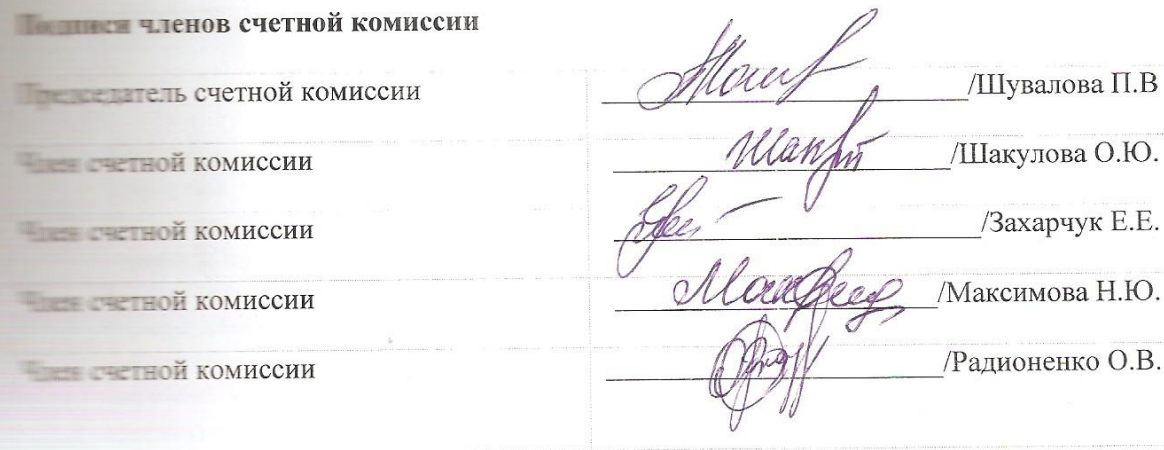 Подписи членов счетной комиссии
Председатель счетной комиссии /Шувалова П.В
Член счетной комиссии /Шакулова О.Ю.
Член счетной комиссии /Захарчук Е.Е.
Член счетной комиссии /Максимова Н.Ю.
Член счетной комиссии /Радионенко О.В.